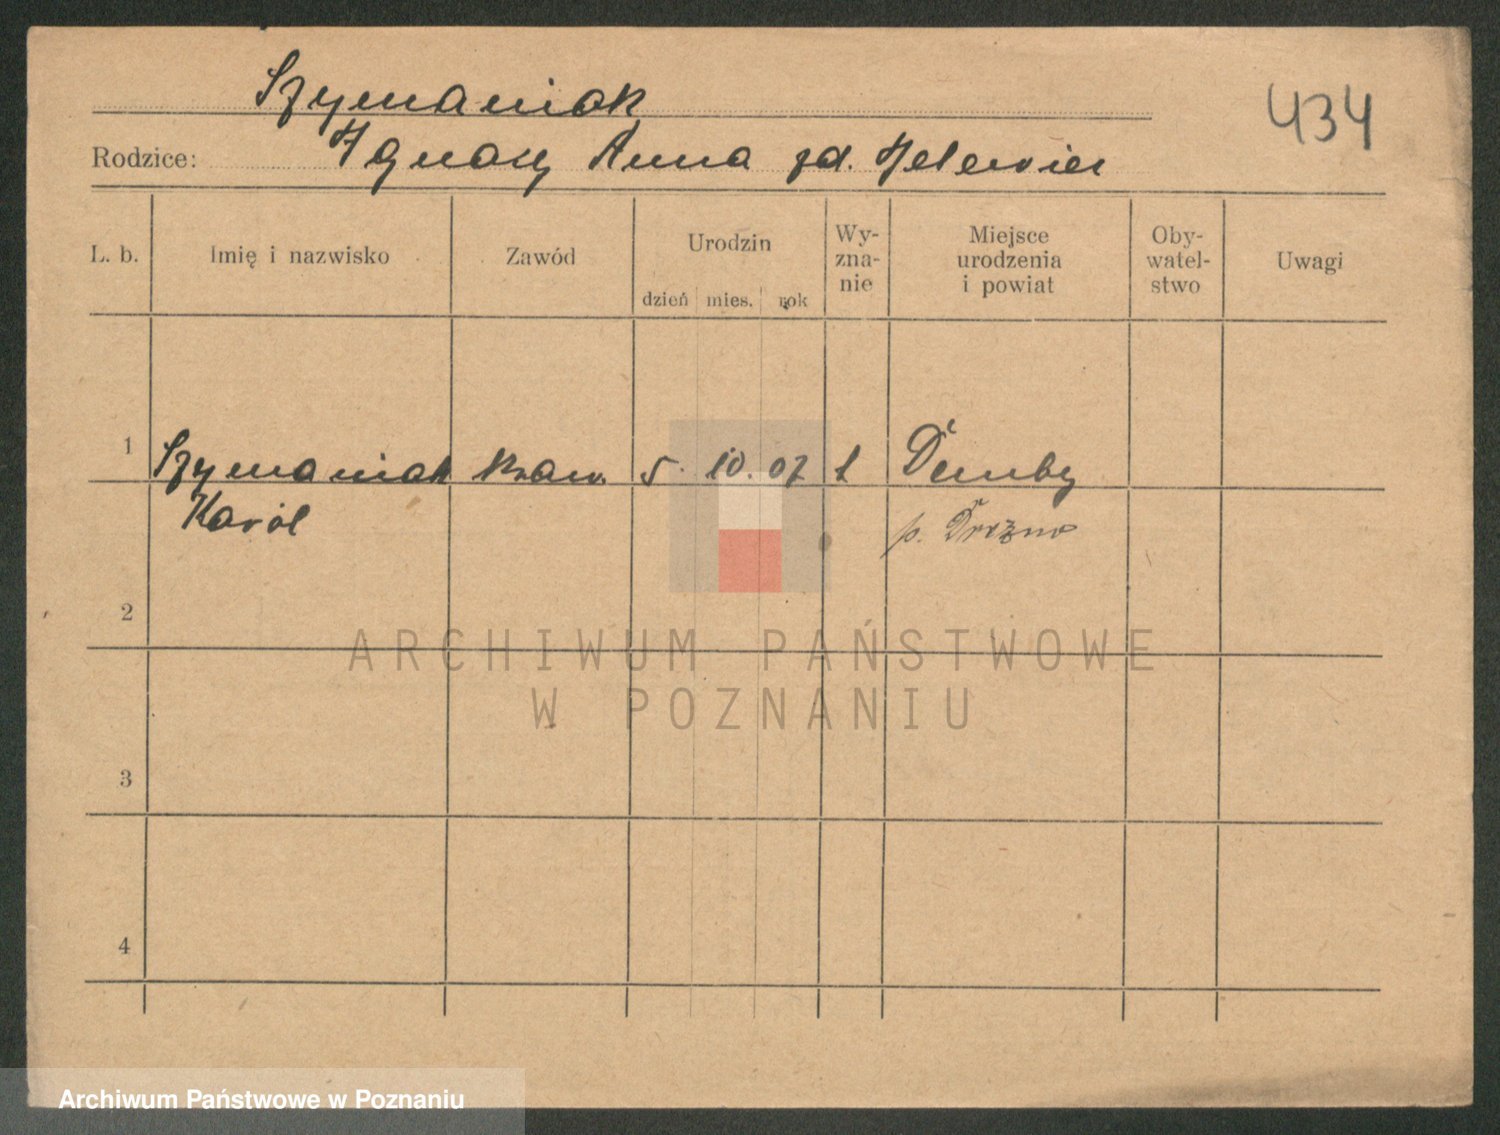 Szymaniak
434
Rodzice: Ignacy Anna zd.
L. b. Imię i nazwisko Zawód Urodzin dzień mies. rok Wy-zna-nie Miejsce urodzenia i powiat Oby-watel-stwo Uwagi
1 Szymaniak 5. 10. 07 Demby
Karól p.
2
3
4
ARCHIWUM PAŃSTWOWE
W POZNANIU
Archiwum Państwowe w Poznaniu